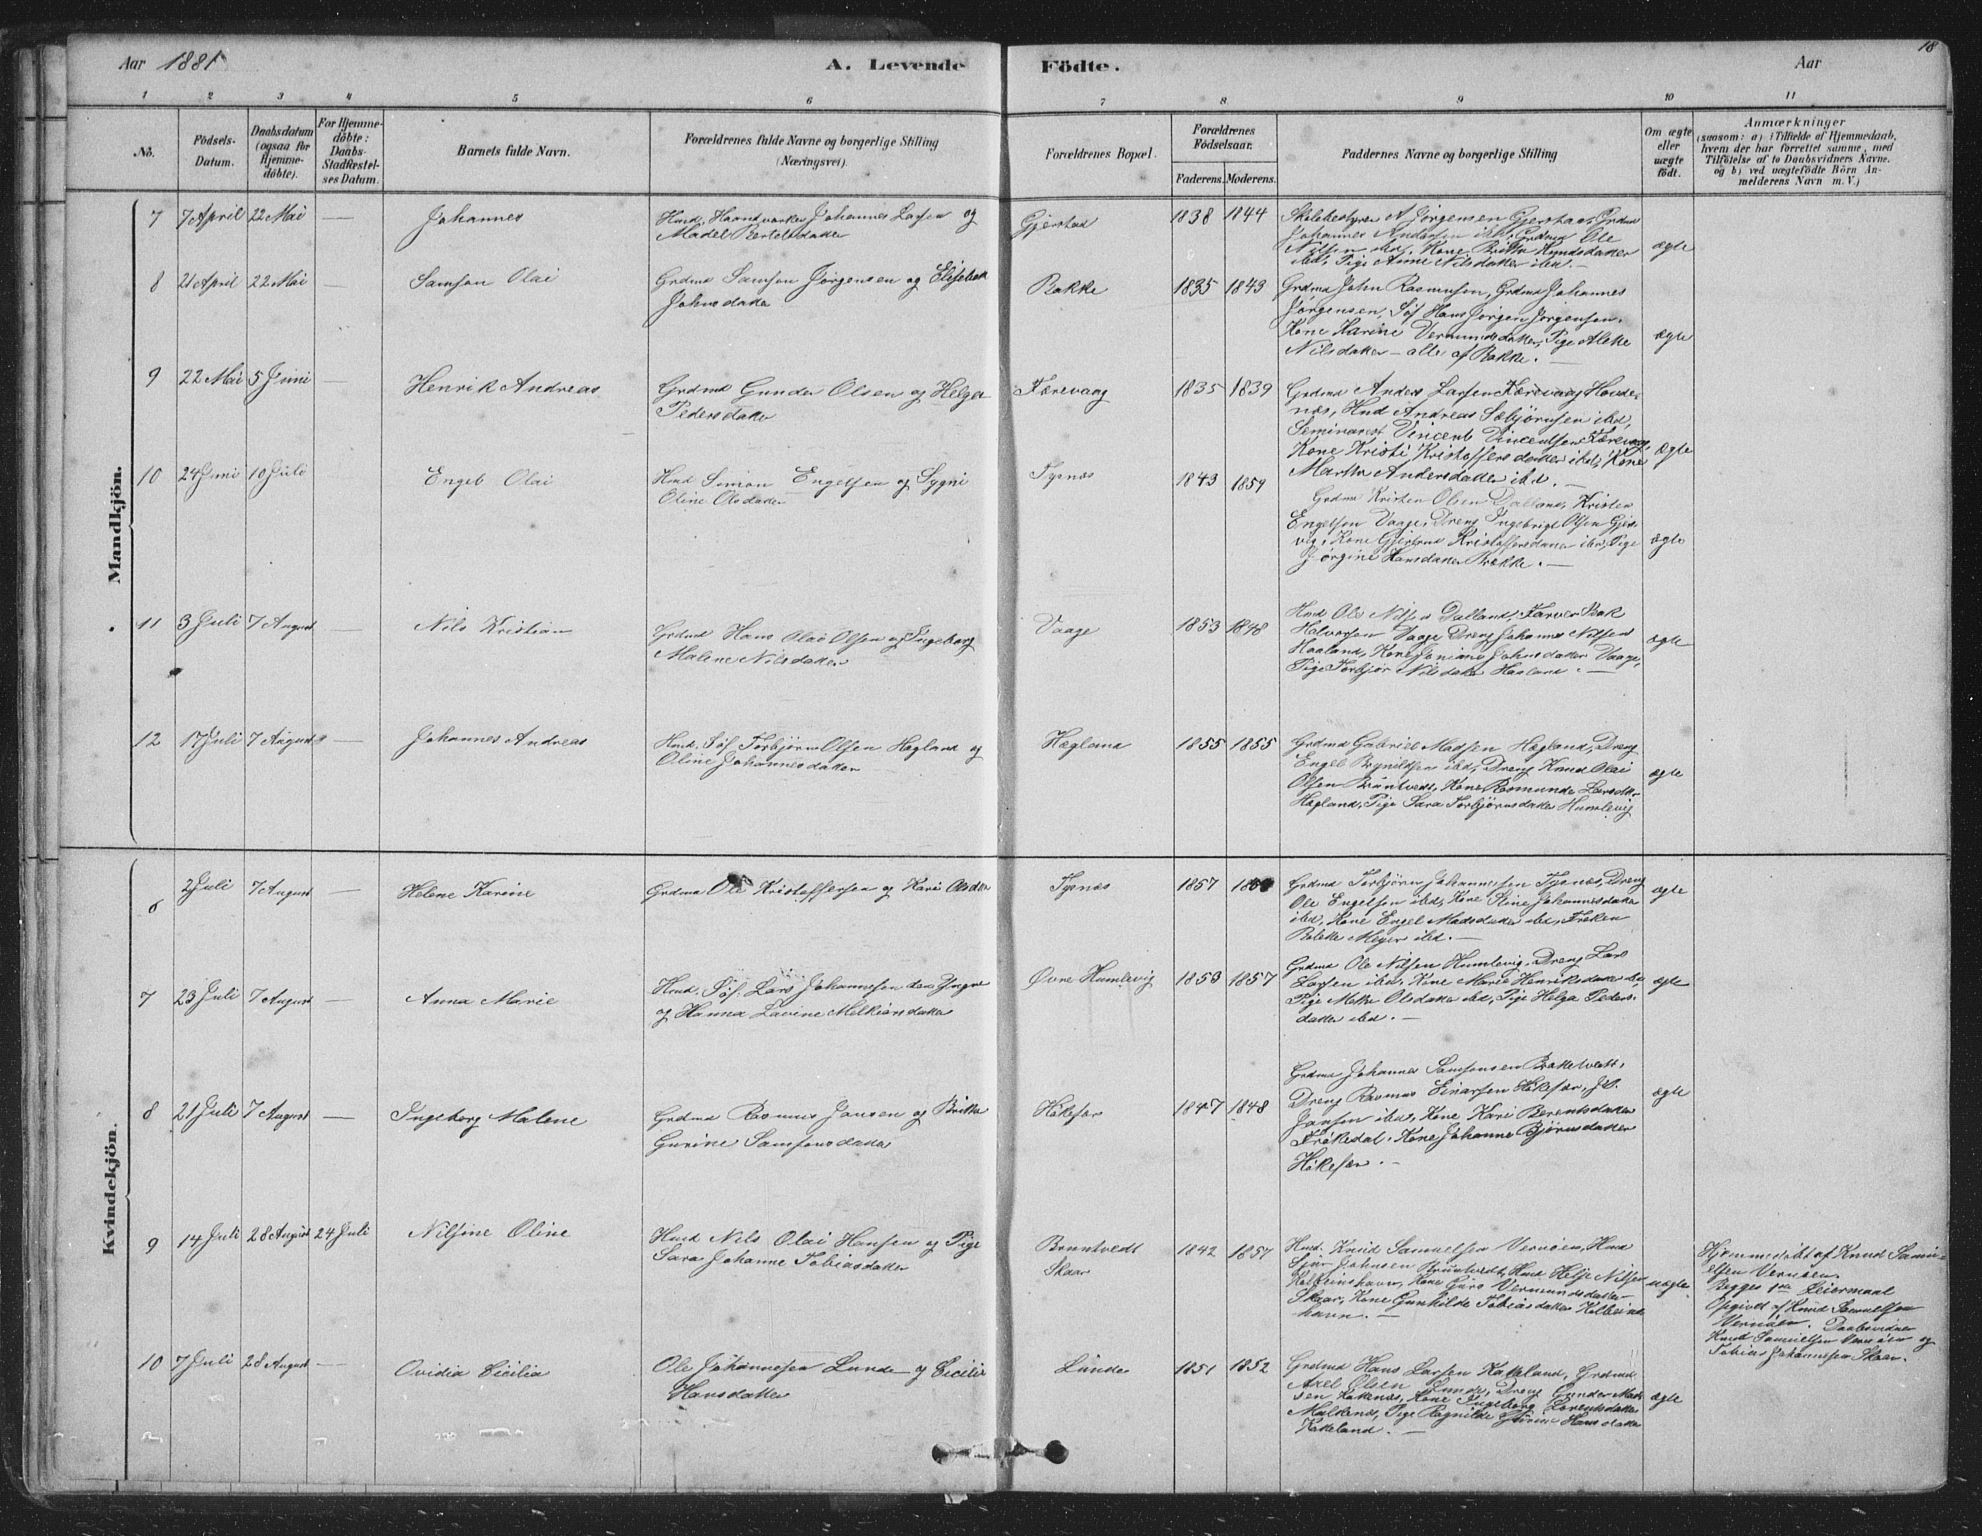 18
Aar 1881 A. Levende Födte. Aar
1 2 3 4 5 6 7 8 9 10 11
No.
Födsels-
Datum.
Daabsdatum
(ogsaa for
Hjemme-
döbte).
For Hjemme-
döbte:
Daabs-
Stadfæstel-
ses Datum.
Barnets fulde Navn.
Forældrenes fulde Navne og borgerlige Stilling
(Næringsvei).
Forældrenes Bopæl.
Forældrenes
Födselsaar.
Faderens. Moderens.
Faddernes Navne og borgerlige Stilling
Om ægte
eller
uægte
födt.
Anmærkninger
(saasom: a) i Tilfælde af Hjemmedaab,
hvem der har forrettet samme, med
Tilföielse af to Daabsvidners Navne.
og b) ved uægtefödte Börn An-
melderens Navn m. V.)
Mandkjön.
7 7 April 22 Mai — Johannes
Hmd. Haandværker Johannes Larsen og
Madel Bertelsdatter
Gjerstad 1838 1844
Skolebestyrer A Jörgensen Gjerstad, Grdmd
Johannes Andersen ibd, Grdmd Ole
Nilsen ibd, Kone Britta Knudsdatter
ibd, Pige Anne Nilsdatter ibd. —
ægte
8 21 April 22 Mai — Samson Olai
Grdmd Samson Jörgensen og Elisebet
Johnsdatter
Bakke 1835 1843
Grdmd John Rasmussen, Grdmd Johannes
Jörgensen, Söf. Hans Jörgen Jörgensen,
Kone Karine Vermundsdatter, Pige Aleke
Nilsdatter — alle af Bakke.
ægte
9 22 Mai 5 Juni — Henrik Andreas
Grdmd Gunder Olsen og Helga
Pedersdatter
Færevaag 1835 1839
Grdmd Anders Larsen Færevaag Hovde-
næs, Hmd Andreas Sæbjörnsen ibd,
Seminarist Vincent Vincentsen Færevaag,
Kone Kristi Kristoffersdatter ibd, Kone
Martha Andersdatter ibd. —
ægte
10 24 Juni 10 Juli Engel Olai
Hmd Simon Engelsen og Sygni
Oline Olsdatter
Tysnæs 1843 1859
Grdmd Kristen Olsen Dalland, Kristen
Engelsen Vaage, Dreng Ingebrigt Olsen Gjer-
vig, Kone Gjertrud Kristoffersdatter ibd, Pige
Jörgine Hansdatter Bakke. —
ægte
11 3 Juli 7 August — Nils Kristian
Grdmd Hans Olai Olsen og Ingeborg
Malene Nilsdatter
Vaage 1853 1848
Hmd Ole Nilsen Dalland, Farver
Halvorsen Vaage Dreng Johannes Nilsen
Haaland, Kone Johnsdatter Vaage,
Pige Torbjör Nilsdatter Haaland. —
ægte
12 17 Juli 7 August — Johannes Andreas
Hmd. Söf. Torbjörn Olsen Hægland og
Oline Johannesdatter
Hægland 1855 1855
Grdmd Gabriel Madsen Hægland, Dreng
Engel Brynildsen ibd, Dreng Knud Olai
Olsen Brüntvedt, Kone Rasmunde Larsdtr
Hægland, Pige Sara Torbjörnsdatter Humlevig
ægte
Kvindekjön.
6 2 Juli 7 August — Helene Karine
Grdmd Ole Kristoffersen og Kari Olsdtr
Tysnæs 1857
Grdmd Torbjörn Johannesen Tysnæs, Dreng
Ole Engelsen ibd, Kone Stine Johannesdatter
ibd, Kone Engel Madsdatter ibd, Fröken
Bolette Meyer ibd. —
ægte
7 23 Juli 7 August — Anna Marie
Hmd. Söf. Lars Johannesen den Yngre
og Hanna Lavine Melkiorsdatter
Övre Humlevig 1853 1857
Grdmd Ole Nilsen Humlevig, Dreng Lars
Larsen ibd, Kone Marie Henriksdatter ibd,
Pige Mette Olsdatter ibd, Pige Helga Peders-
datter ibd. —
ægte
8 21 Juli 7 August — Ingeborg Malene
Grdmd Rasmus Jansen og Britta
Gurine Samsonsdatter
Hökefær 1847 1848
Grdmd Johannes Samsonsen Bakketvedt,
Dreng Rasmus Einarsen Hökefær,
Jansen ibd, Kone Kari Berentsdatter
Frökedal, Kone Johanne Björnsdatter
Hökefær. —
ægte
9 14 Juli 28 August 24 Juli Nilsine Oline
Hmd Nils Olai Hansen og Pige
Sara Johanne Tobiasdatter
Brüntvedt
Skaar
1842 1857
Hmd. Knud Samuelsen Vernöen, Hmd
Sjur Johnsen Brüntvedt, Hmd Helje Nilsen
Kolbeinshavn, Kone Guro Vermundsdatter
Skaar, Kone Gunhilde Tobiasdatter Kolbeins-
havn. —
uægte.
Hjemmedöbt af Knud Samu-
elsen Vernöen.
Begges 1ste Leiermaal
Opgivet af Knud Samuelsen
Vernöen. Daabsvidner
Knud Samuelsen Vernöen og
Tobias Johannesen Skaar.
10 7 Juli 28 August — Ovidia Cicilia
Ole Johannesen Lunde og Cicilie
Hansdatter
Lunde 1851 1852
Grdmd Hans Larsen Kakeland, Grdmd
Axel Olsen Lunde, Dreng Gunder Mad-
sen Hökenæs, Kone Ingeborg Lorentsdatter
Pige Ragnilde Hansdatter
Kakeland. —
ægte